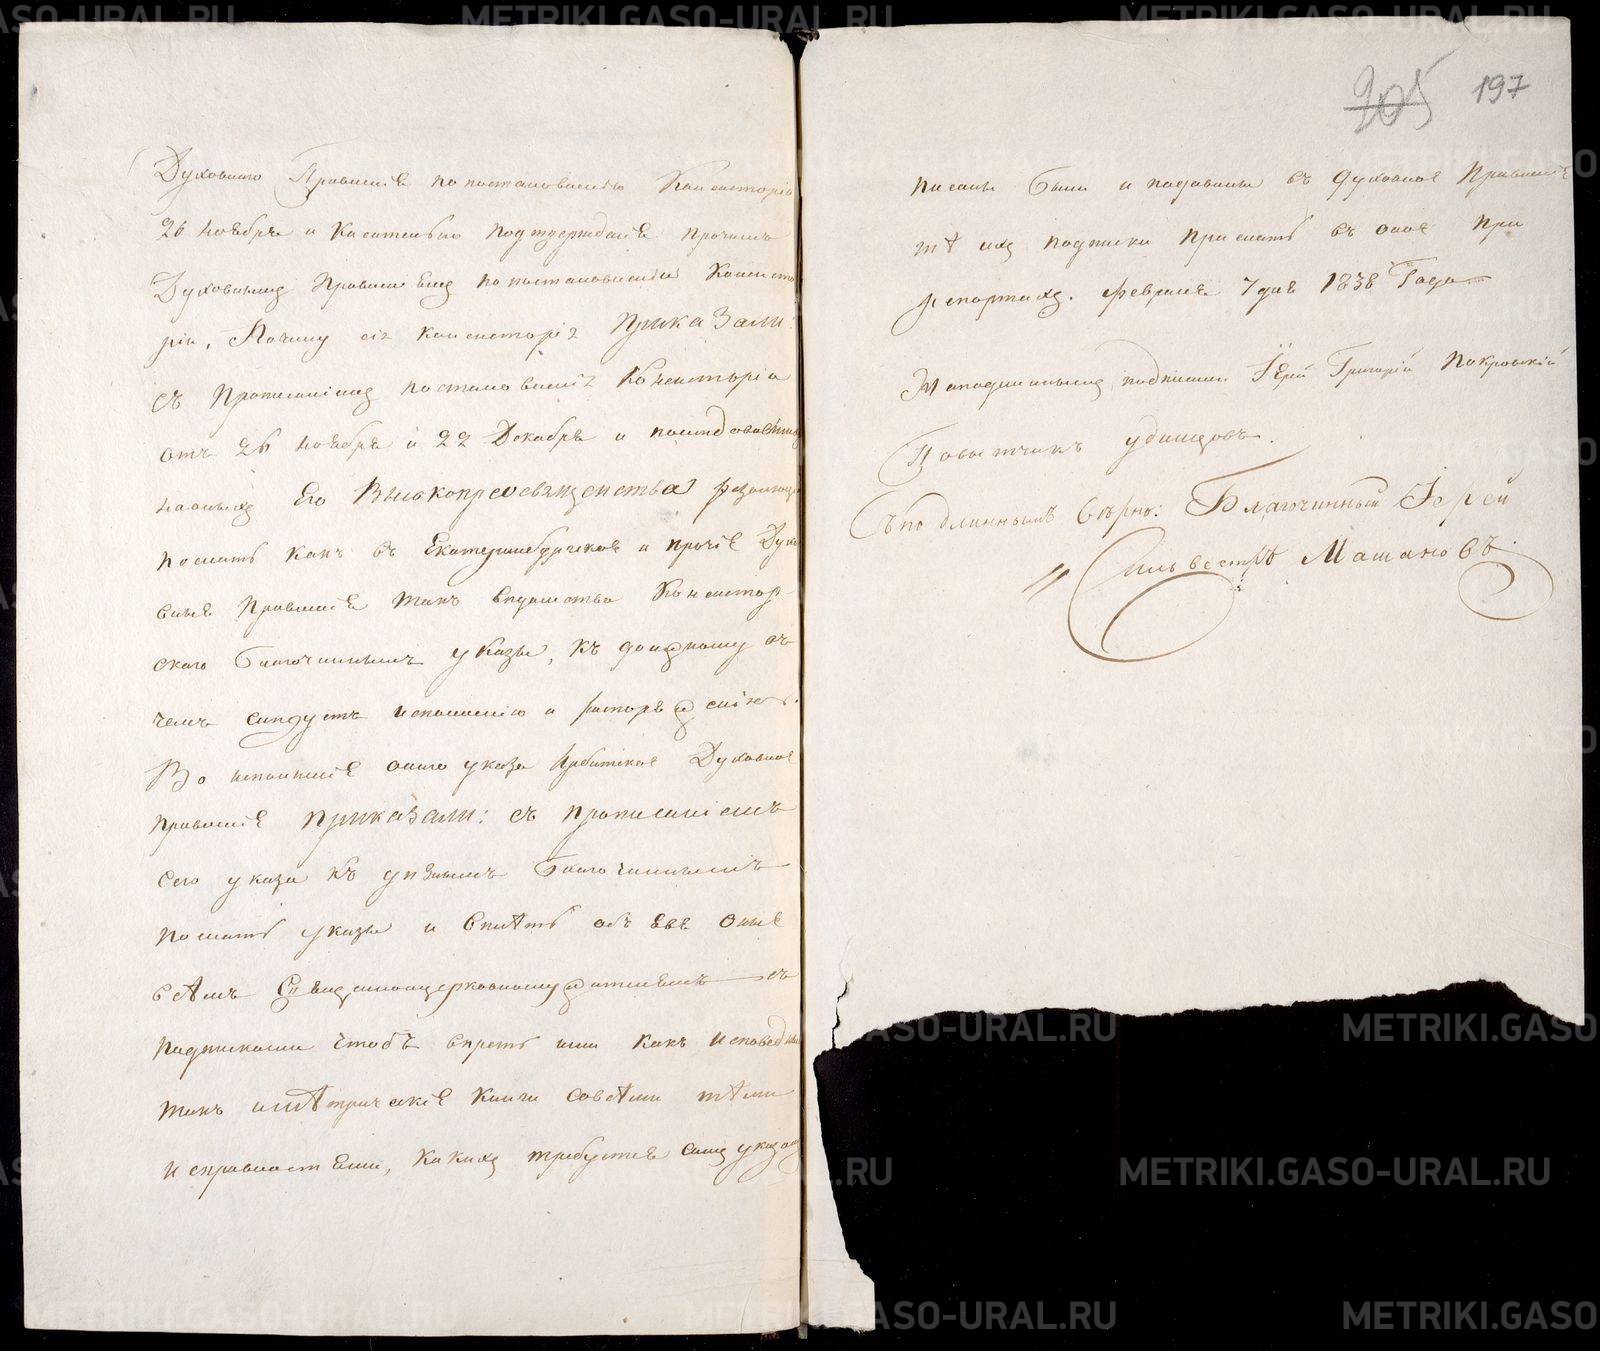 Духовного Правленія по постановленію Консисторіи
26 ноября и касательно подтвержденія прочимъ
Духовнымъ Правленіямъ по постановленію Консисто
ріи, Почему сія Консисторія Приказали:
съ прописаніемъ постановленія Консисторіи
отъ 26 ноября и 22 Декабря и последовавшихъ
на оныхъ Его Высокопреосвященства резолюцій
послать какъ въ Екатеринбургское и прочіе Духо
вные Правленіе такъ ведомства Консистор
скаго Благочиннымъ указы, къ должному въ
чемъ следуетъ исполненію и распоряженію.
Во исполненіе онаго указа Ирбитское Духовное
Правленіе Приказали: съ прописаніемъ
сего указа къ уезнымъ Благочиннымъ
послать указы и велѣть объ
всѣмъ Священноцерковнослужителямъ съ
подписками чтобъ впреть ими какъ исповедныя
такъ и мѣтрическіе книги со всѣми тѣми
исправностями, какихъ требуется симъ указомъ
205 197
писаны были и подаваны въ духовное Правленіе
тѣ ихъ подписки прислать въ оное при
репортахъ. февраля 7 дня 1838 Года
На подлинномъ подписали Іерей Григорій Покровскій
Повытчикъ Удинцовъ.
Съ подлиннымъ Верно: Благочинный Іерей
Сильвестръ Машановъ
METRIKI.GASO-URAL.RU